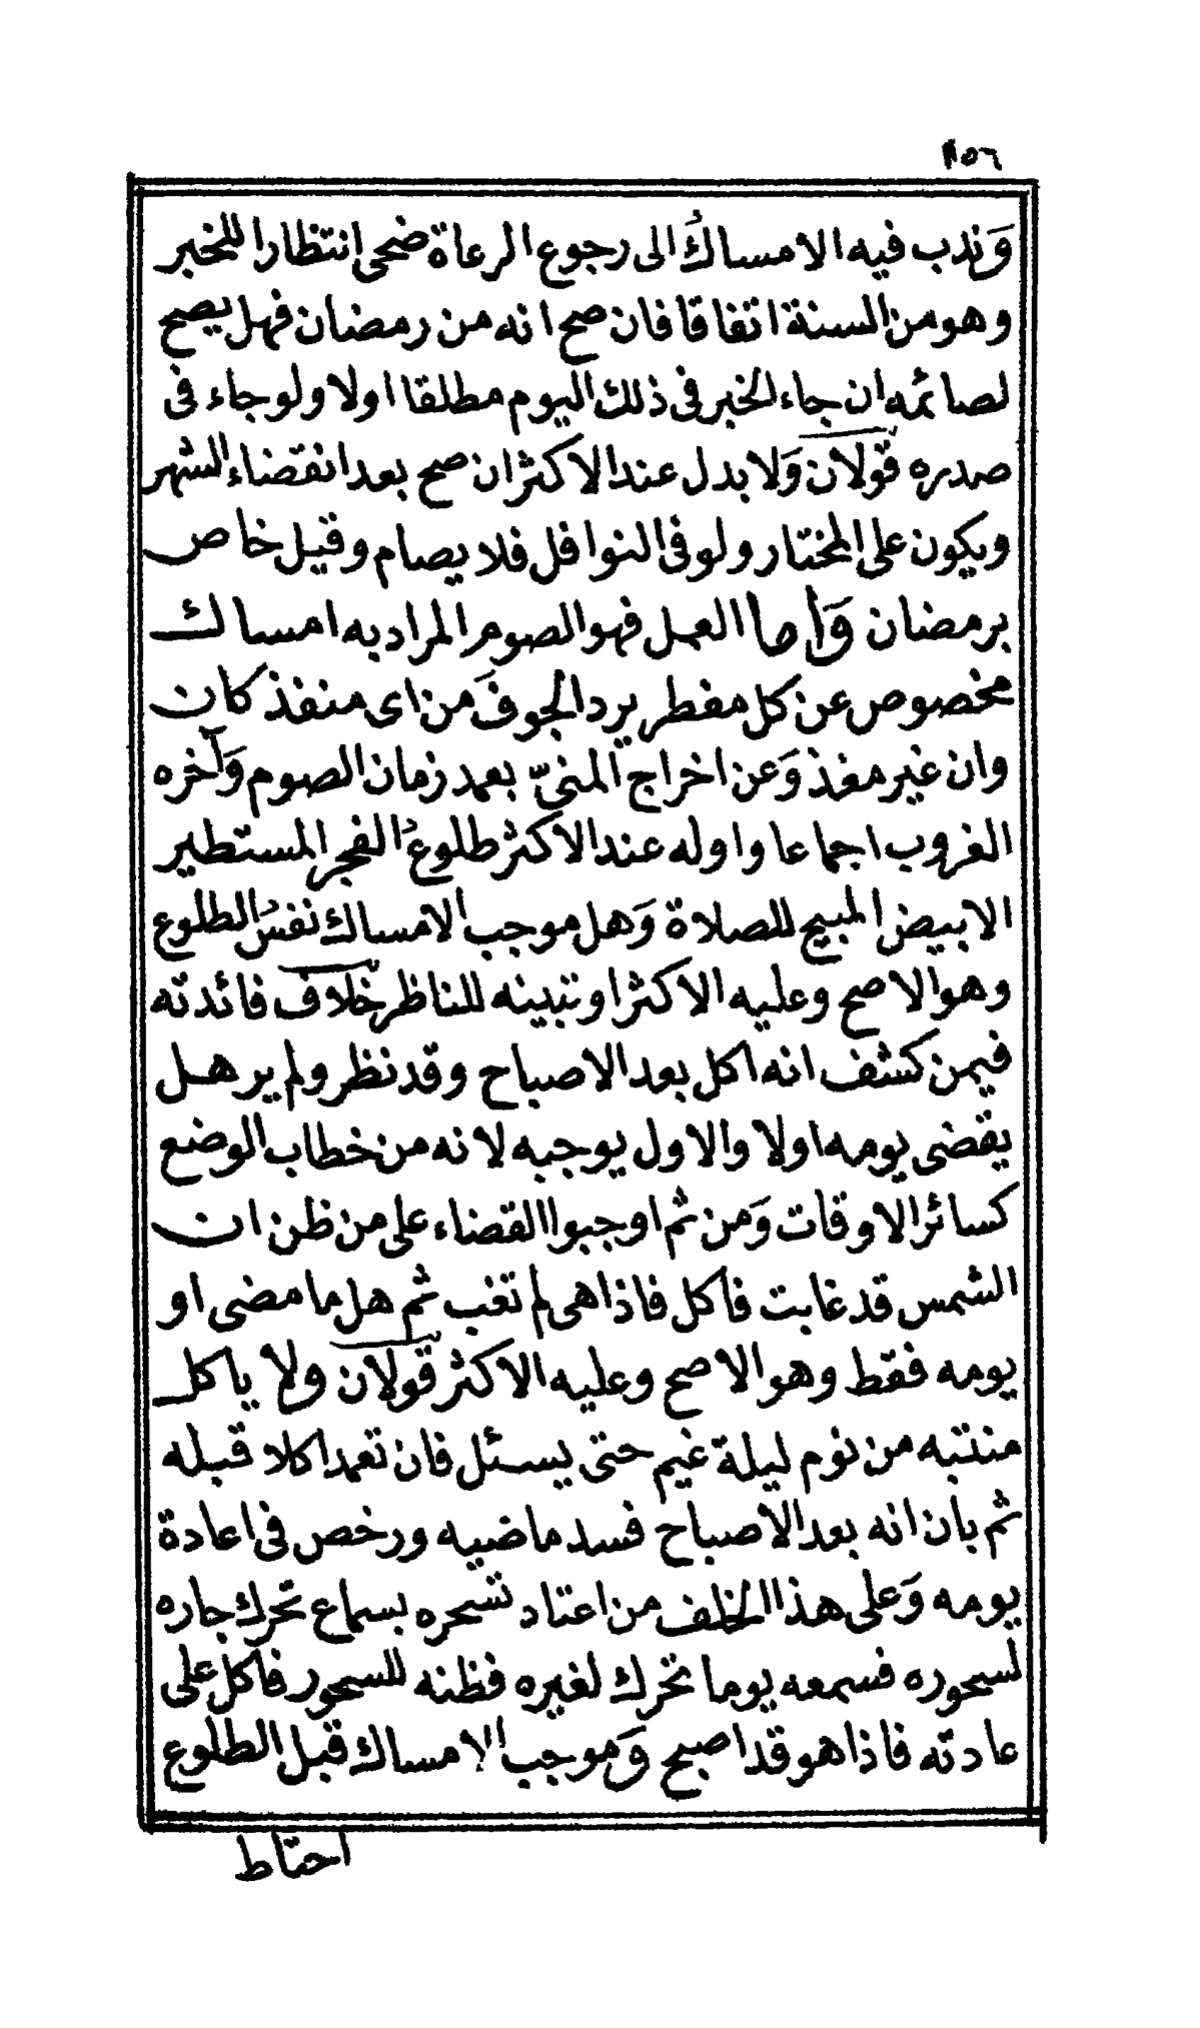 ١١٥٦
وَندب فيه الامساكُ الى رجوع الرعاة ضحى انتظارا للخبر
وهو من السنة اتفاقا فان صح انه من رمضان فهل يصح
لصائمه ان جاء الخبر فى ذلك اليوم مطلقا اولا ولو جاء فى
صدره قولان وَلا بدل عند الاكثر ان صح بعد انقضاء الشهر
ويكون على المختار ولو فى النوافل فلا يصام وقيل خاص
برمضان وَأما العمل فهو الصوم المراد به امساك
مخصوص عن كل مفطر يرد الجوفَ من اى منفذ كان
وان غير مغذ وَعن اخراج المنىّ بعمد زمان الصوم وَآخره
الغروب اجماعا واوله عند الاكثر طلوعُ الفجر المستطير
الابيض المبيح للصلاة وَهل موجب الامساك نفسُ الطلوع
وهو الاصح وعليه الاكثر او تبينه للناظر خلاف فائدته
فيمن كشف انه اكل بعد الاصباح وقد نظر ولم ير هل
يقضى يومه اولا والاول يوجبه لانه من خطاب الوضع
كسائر الاوقات وَمن ثم اوجبوا القضاء على من ظن ان
الشمس قد غابت فأكل فاذا هى لم تغب ثم هل ما مضى او
يومه فقط وهو الاصح وعليه الاكثر قولان ولا ياكل
منتبه من نوم ليلة غيم حتى يسئل فان تعمد اكلا قبله
ثم بان انه بعد الاصباح فسد ماضيه ورخص فى اعادة
يومه وَعلى هذا الخلف من اعتاد تسحره بسماع تحرك جاره
لسحوره فسمعه يوما تحرك لغيره فظنه للسحور فأكل على
عادته فاذا هو قد اصبح وَموجب الامساك قبل الطلوع
احتاط